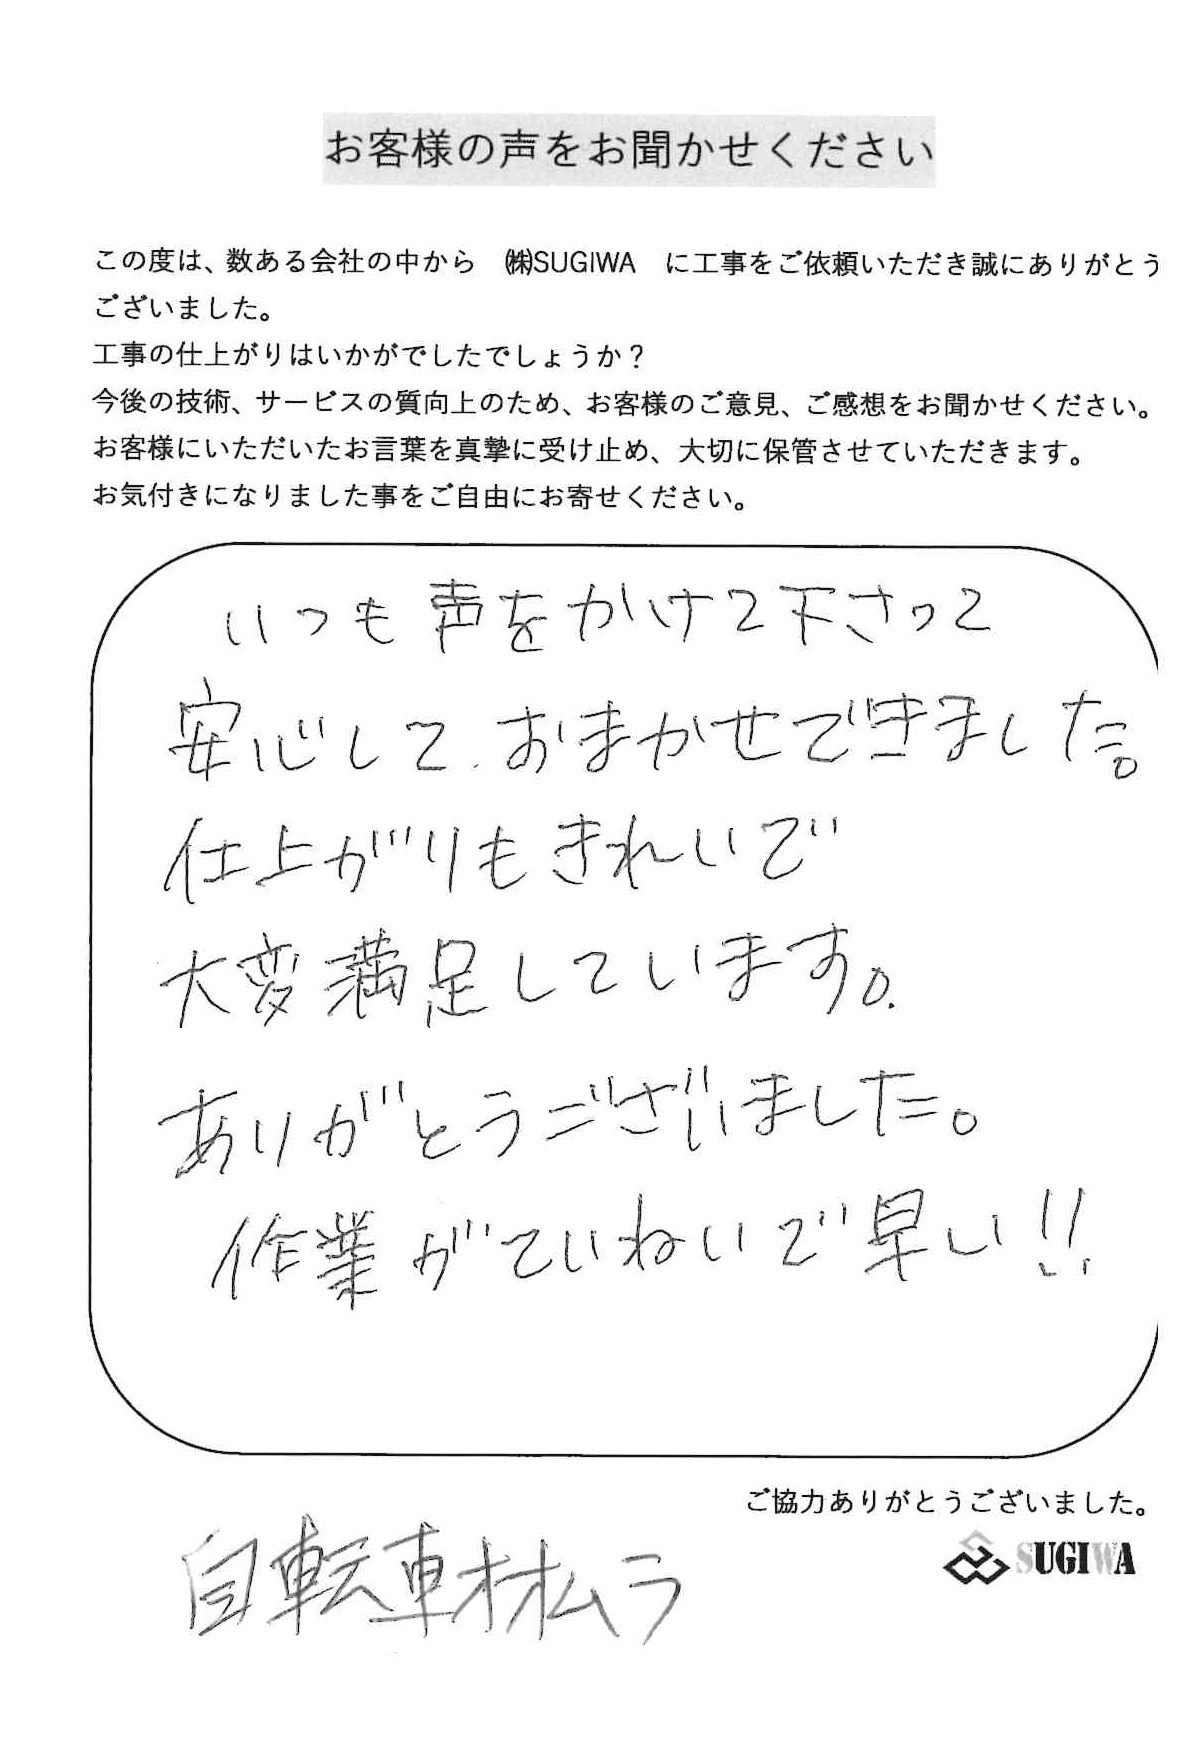 お客様の声をお聞かせください
この度は、数ある会社の中から ㈱SUGIWA に工事をご依頼いただき誠にありがとう
ございました。
工事の仕上がりはいかがでしたでしょうか？
今後の技術、サービスの質向上のため、お客様のご意見、ご感想をお聞かせください。
お客様にいただいたお言葉を真摯に受け止め、大切に保管させていただきます。
お気付きになりました事をご自由にお寄せください。
いつも声をかけて下さって
安心して、おまかせできました。
仕上がりもきれいで
大変満足しています。
ありがとうございました。
作業がていねいで早い!!
ご協力ありがとうございました。
SUGIWA
自転車